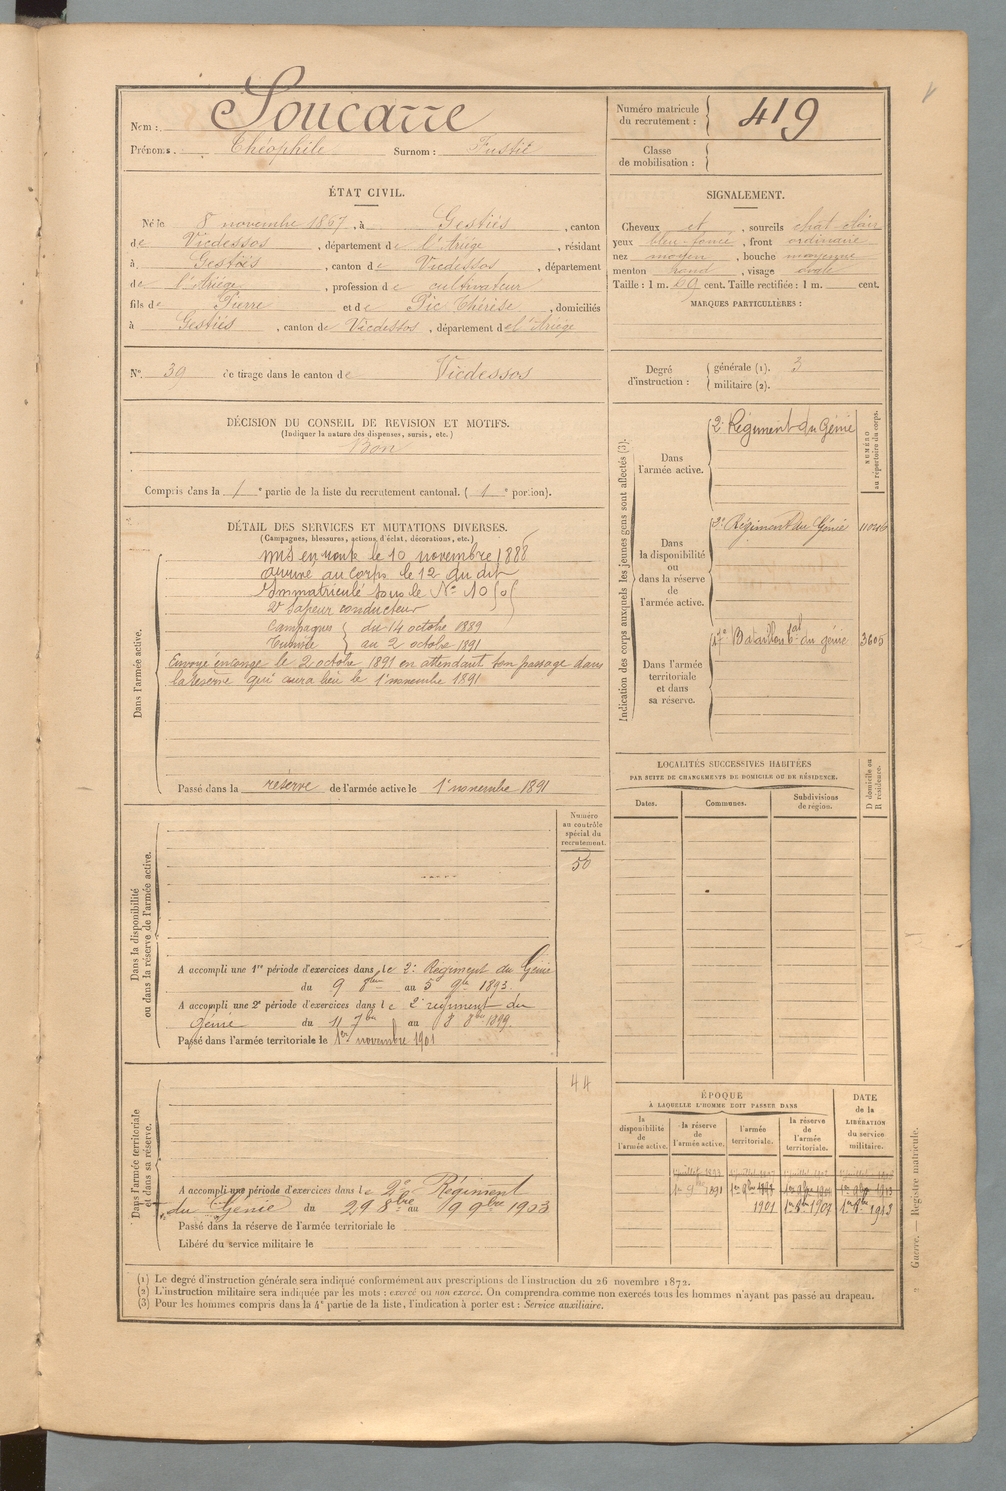 Nom : Soucarre
Prénoms. Théophile Surnom : Fustié
Numéro matricule
du recrutement : 419
Classe
de mobilisation :
ÉTAT CIVIL.
Né le 8 novembre 1867, à Gestiès, canton
de Vicdessos, département de l'Ariège, résidant
à Gestiès, canton de Vicdessos, département
de l'Ariège, profession de cultivateur
fils de Pierre et de Pic Thérèse, domiciliés
à Gestiès, canton de Vicdessos, département de l'Ariège
SIGNALEMENT.
Cheveux et, sourcils chat-clair
yeux bleu-foncé, front ordinaire
nez moyen, bouche moyenne
menton rond, visage ovale
Taille : 1 m. 69 cent. Taille rectifiée : 1 m. cent.
MARQUES PARTICULIÈRES :
N° 30 de tirage dans le canton de Vicdessos
Degré
d'instruction :
générale (1). 3
militaire (2).
DÉCISION DU CONSEIL DE REVISION ET MOTIFS.
(Indiquer la nature des dispenses, sursis, etc.)
Bon
Compris dans la 1re partie de la liste du recrutement cantonal. ( 1e portion).
DÉTAIL DES SERVICES ET MUTATIONS DIVERSES.
(Campagnes, blessures, actions d'éclat, décorations, etc.)
Dans l'armée active.
mis en route le 10 novembre 1888
arrivé au corps le 12 du dit
Immatriculé sous le N° 1050
2e Sapeur conducteur
Campagnes du 14 octobre 1889
Tunisie au 2 octobre 1891
Envoyé en congé le 2 octobre 1891 en attendant son passage dans
la réserve qui aura lieu le 1er novembre 1891
Passé dans la réserve de l'armée active le 1er novembre 1891
Indication des corps auxquels les jeunes gens sont affectés (3).
NUMÉRO
au répertoire du corps.
Dans
l'armée active.
2e Régiment du Génie
Dans
la disponibilité
ou
dans la réserve
de
l'armée active.
2e Régiment du Génie
Dans l'armée
territoriale
et dans
sa réserve.
Bataillon tal du génie 3605
LOCALITÉS SUCCESSIVES HABITÉES
PAR SUITE DE CHANGEMENTS DE DOMICILE OU DE RÉSIDENCE.
Dates. Communes. Subdivisions
de région.
D domicile ou
R résidence.
Dans la disponibilité
ou dans la réserve de l'armée active.
Numéro
au contrôle
spécial du
recrutement.
50
A accompli une 1re période d'exercices dans le 2e Régiment du Génie
du 9 8bre au 5 9bre 1893
A accompli une 2e période d'exercices dans le 2e régiment du
génie du 11 7bre au 8 8bre 1899.
Passé dans l'armée territoriale le 1er novembre 1901
Dans l'armée territoriale
et dans sa réserve.
44
A accompli une période d'exercices dans le 2e Régiment
du Génie du 29 8bre au 19 9bre 1903
Passé dans la réserve de l'armée territoriale le
Libéré du service militaire le
ÉPOQUE
À LAQUELLE L'HOMME DOIT PASSER DANS
la
disponibilité
de
l'armée active.
la réserve
de
l'armée active.
l'armée
territoriale.
la réserve
de
l'armée
territoriale.
DATE
de la
LIBÉRATION
du service
militaire.
1er 9bre 1891
1901 1er 8bre 1907 1er 8bre 1913
(1) Le degré d'instruction générale sera indiqué conformément aux prescriptions de l'instruction du 26 novembre 1872.
(2) L'instruction militaire sera indiquée par les mots : exercé ou non exercé. On comprendra comme non exercés tous les hommes n'ayant pas passé au drapeau.
(3) Pour les hommes compris dans la 4e partie de la liste, l'indication à porter est : Service auxiliaire.
Guerre. — Registre matricule.